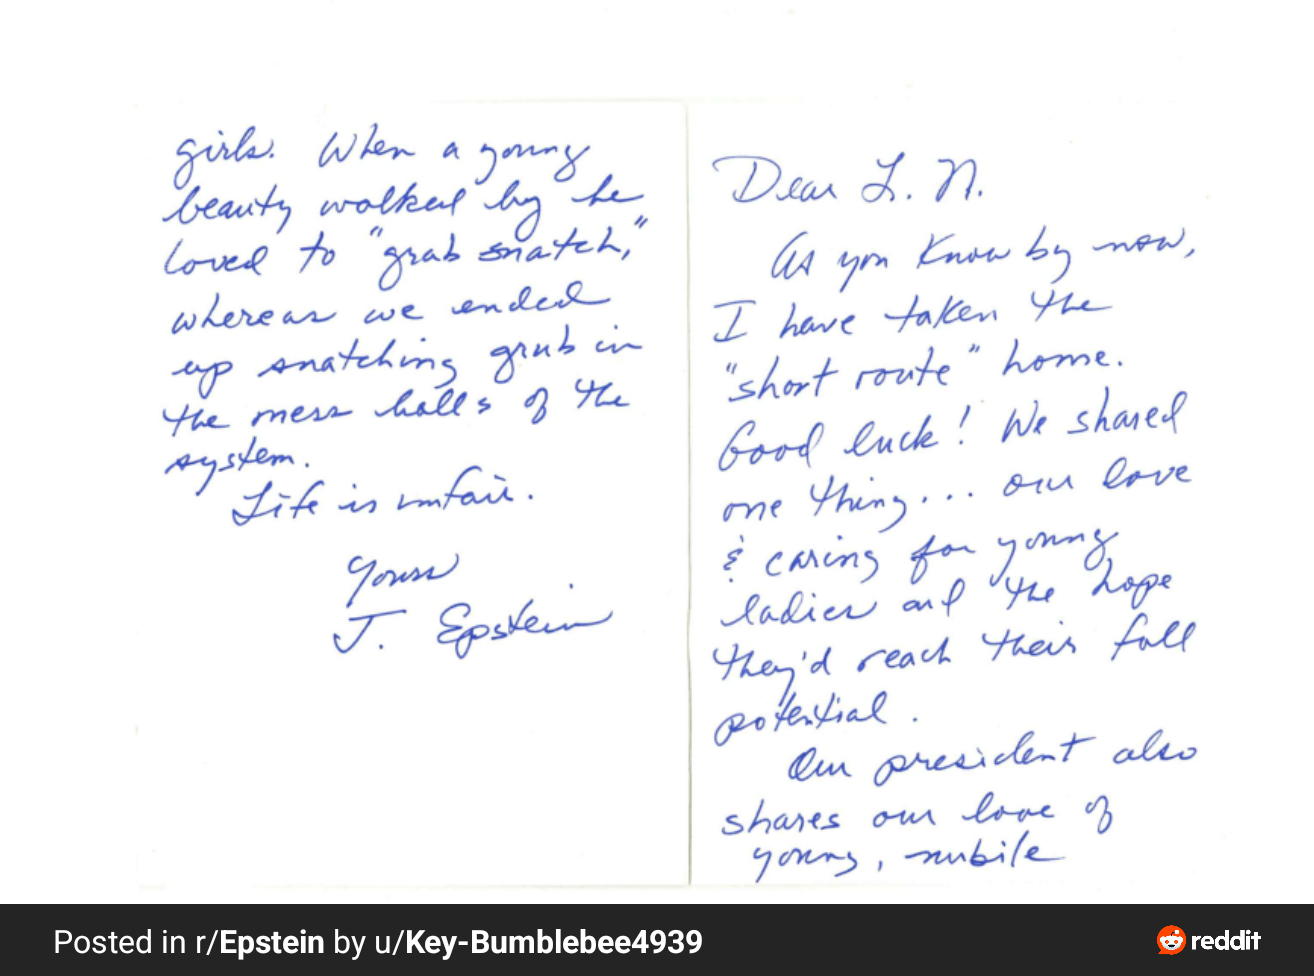 Dear L. N.
As you know by now,
I have taken the
"short route" home.
Good luck! We shared
one thing... our love
& caring for young
ladies and the hope
they'd reach their full
potential.
Our president also
shares our love of
young, nubile
girls. When a young
beauty walked by he
loved to "grab snatch,"
whereas we ended
up snatching grub in
the mess halls of the
system.
Life is unfair.
Yours
J. Epstein
Posted in r/Epstein by u/Key-Bumblebee4939
reddit